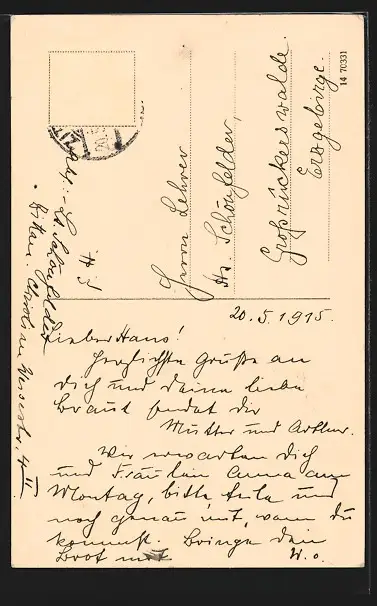 14 70331
Herrn Lehrer
Hs. Schönfelder,
Großrückerswalde.
Erzgebirge.
Schönfelder
20.5.1915.
Lieber Hans!
Herzlichste Grüße an
Dich und Deine liebe
Braut sendet Dir
Mutter und Arthur.
Wir erwarten Dich
und Fräulein Anna am
Montag, bitte teile uns
noch genau mit, wann Du
kommst. Bringe Dein
Brot mit W. o.